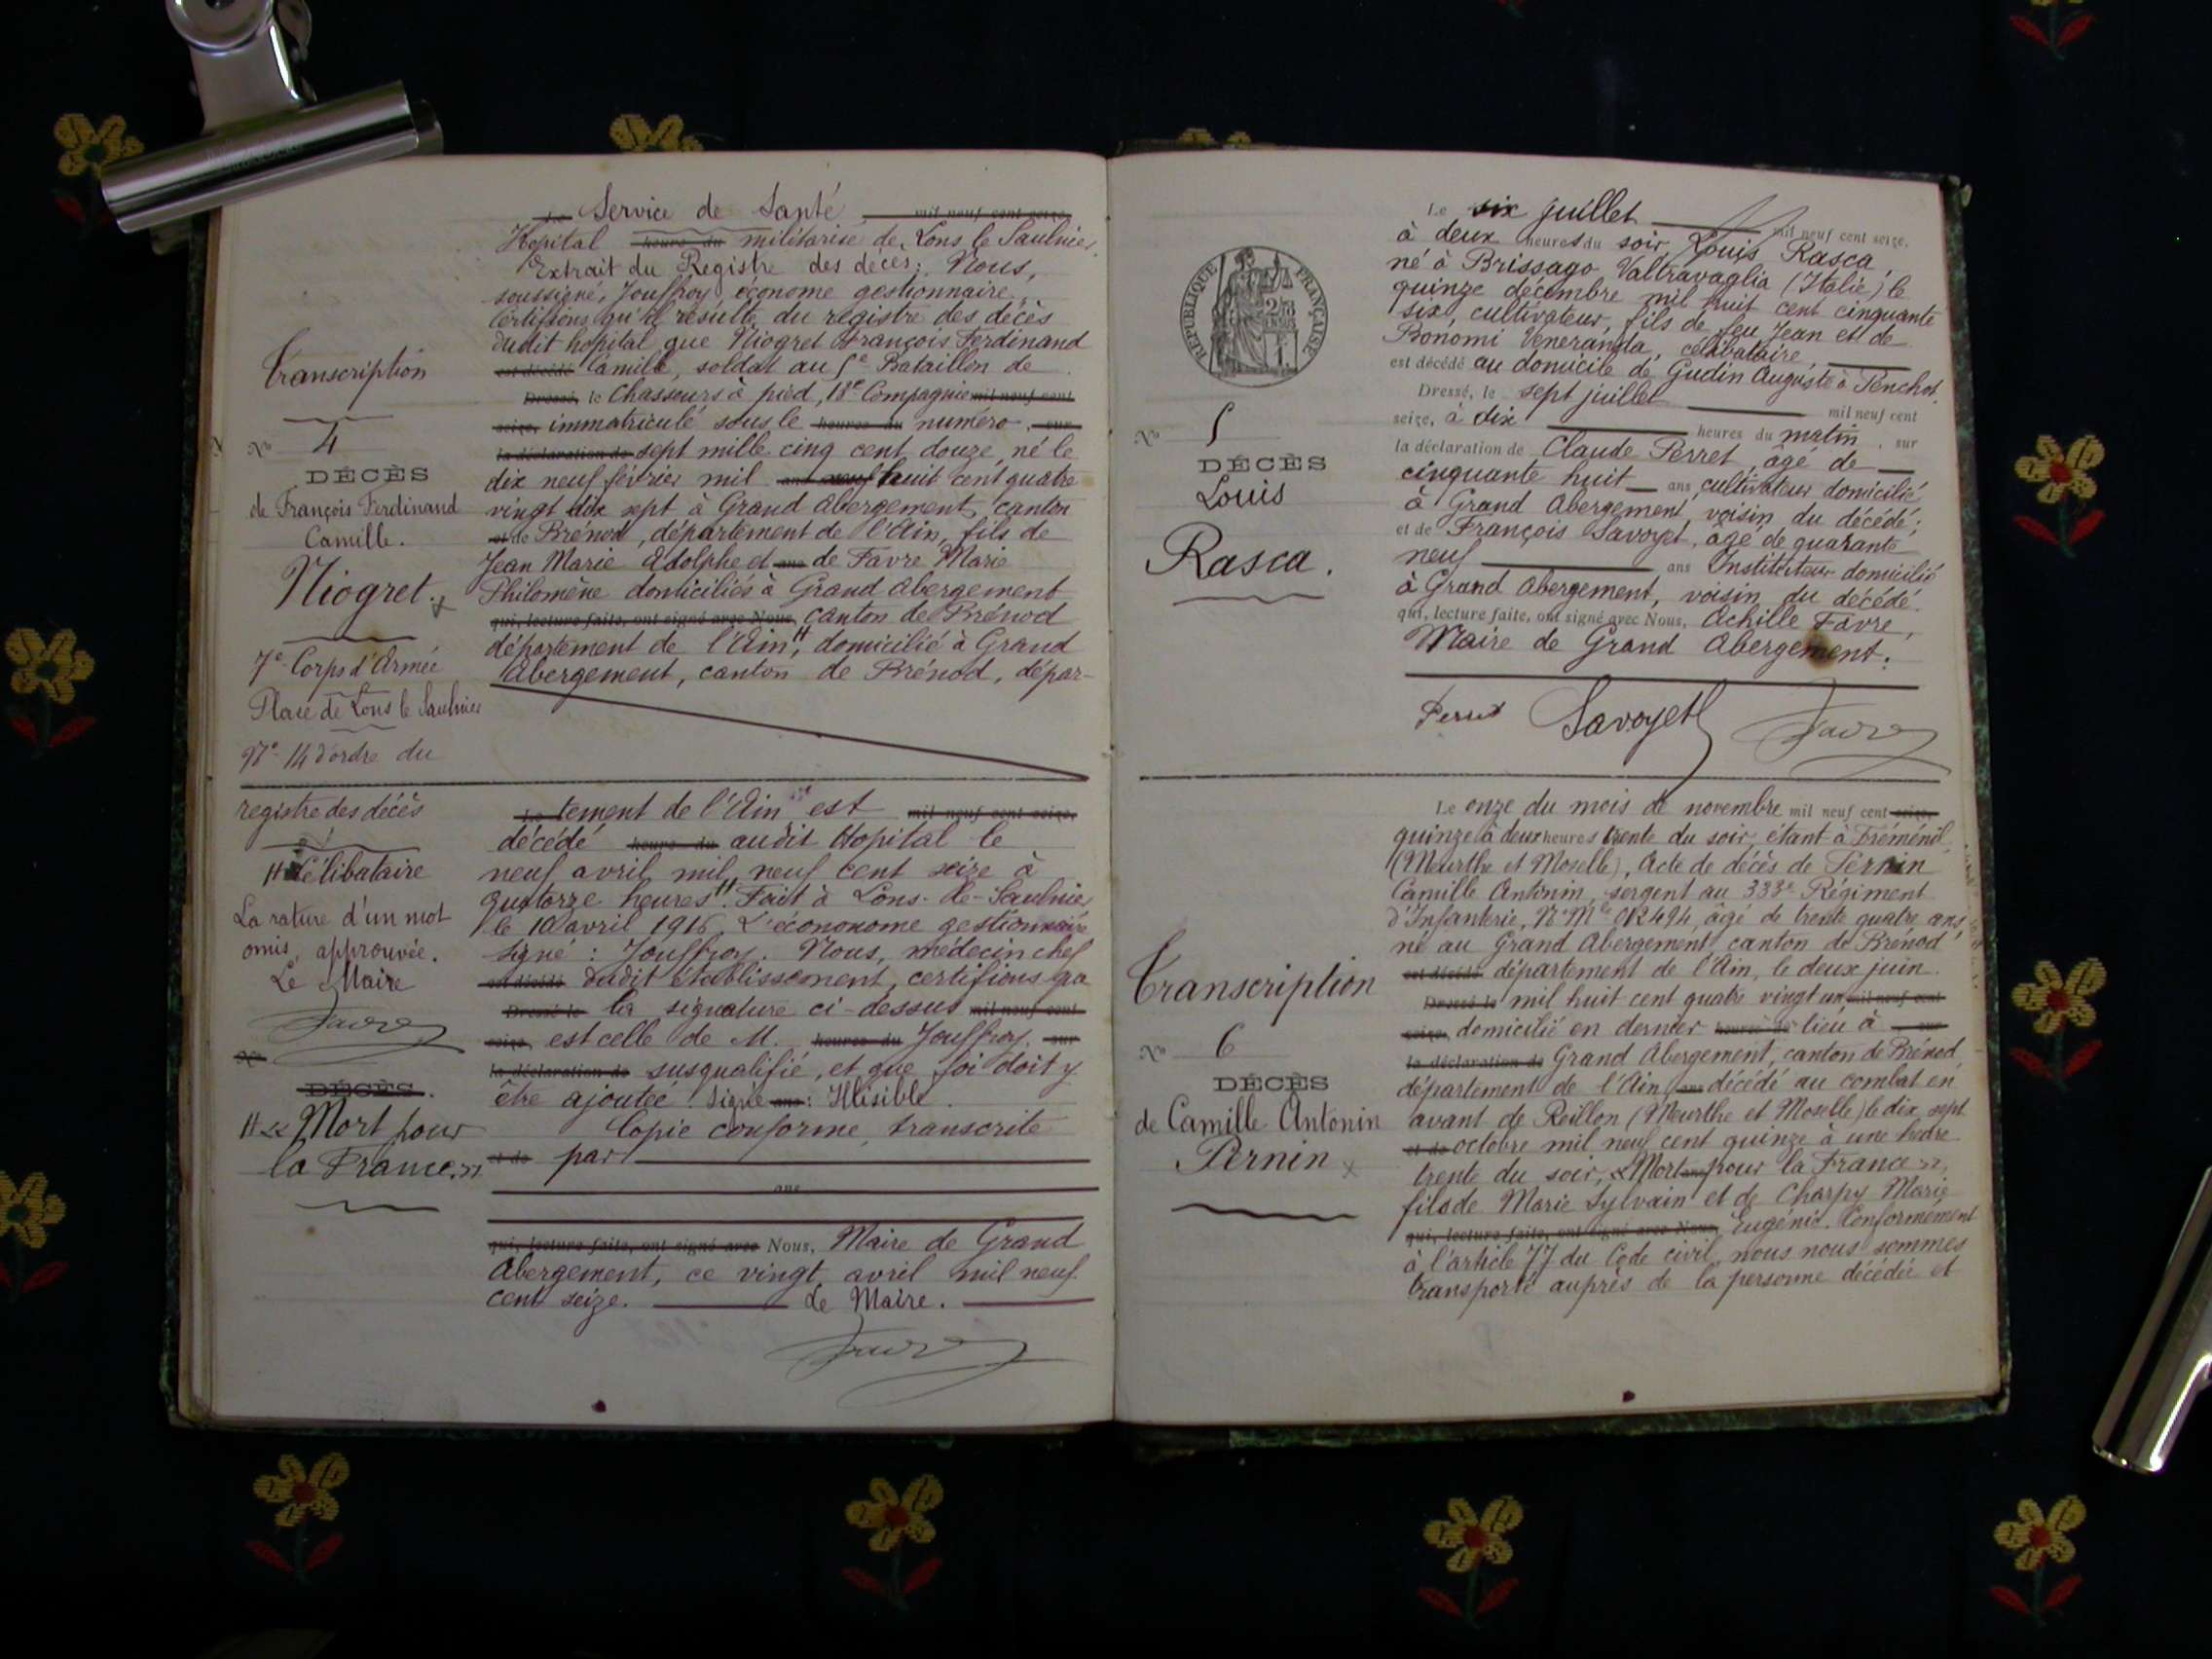 Service de Santé
Hopital militarisé de Lons le Saulnier
Extrait du Registre des décès: Nous,
soussigné, Jouffroy économe gestionnaire,
Certifions qu'il résulte du registre des décès
dudit hopital que Niogret François Ferdinand
Camille, soldat au 5e Bataillon de
le Chasseurs à pied, 18e Compagnie
immatriculé sous le numéro
sept mille cinq cent douze, né le
dix neuf février mil huit cent quatre
vingt dix sept à Grand Abergement, canton
de Brénod, département de l'Ain, fils de
Jean Marie Adolphe et de Favre Marie
Philomène domiciliés à Grand Abergement
canton de Brénod
département de l'Ain, H domicilié à Grand
Abergement, canton de Brénod, dépar-
Transcription
No 4
DÉCÈS
de François Ferdinand
Camille.
Niogret.
7e Corps d'Armée
Place de Lons le Saulnier
No 14 d'ordre du
registre des décès
H Célibataire
La rature d'un mot
omis, approuvée.
Le Maire
Favre
DÉCÈS.
H « Mort pour
la France »
tement de l'Ain est mil neuf cent seize,
décédé heure du audit Hopital le
neuf avril mil neuf cent seize à
quatorze heures H. Fait à Lons-le-Saulnier
le 10 avril 1916. L'économe gestionnaire
signé: Jouffroy. Nous, médecin chef
est décédé dudit établissement, certifions que
Dressé le la signature ci-dessus mil neuf cent
seize, est celle de M. heures du Jouffroy. sur
la déclaration de susqualifié, et que foi doit y
être ajoutée. Signé ans: Illisible.
Copie conforme, transcrite
et de par
ans
qui, lecture faite, ont signé avec Nous, Maire de Grand
Abergement, ce vingt avril mil neuf
cent seize. Le Maire.
Favre
RÉPUBLIQUE FRANÇAISE
No 5
DÉCÈS
Louis
Rasca.
Le six juillet mil neuf cent seize,
à deux heures du soir Louis Rasca,
né à Brissago Valtravaglia (Italie) le
quinze décembre mil huit cent cinquante
six, cultivateur, fils de feu Jean et de
Bonomi Veneranda, célibataire,
est décédé au domicile de Gudin Auguste à Penchot.
Dressé, le sept juillet mil neuf cent
seize, à dix heures du matin, sur
la déclaration de Claude Perret, âgé de
cinquante huit ans, cultivateur domicilié
à Grand Abergement, voisin du décédé;
et de François Savoyet, âgé de quarante
neuf ans Instituteur domicilié
à Grand Abergement, voisin du décédé.
qui, lecture faite, ont signé avec Nous, Achille Favre,
Maire de Grand Abergement.
Perret Savoyet Favre
Transcription
No 6
DÉCÈS
de Camille Antonin
Pernin
Le onze du mois de novembre mil neuf cent seize,
quinze à deux heures trente du soir, étant à Fréménil
(Meurthe et Moselle), Acte de décès de Pernin
Camille Antonin, sergent au 333e Régiment
d'Infanterie, No Mle 012494, âgé de trente quatre ans,
né au Grand Abergement canton de Brénod
est décédé département de l'Ain, le deux juin
Dressé le mil huit cent quatre vingt un mil neuf cent
seize, domicilié en dernier heures du lieu à sur
la déclaration de Grand Abergement, canton de Brénod
département de l'Ain, ans décédé au combat en
avant de Reillon (Meurthe et Moselle) le dix sept
et de octobre mil neuf cent quinze à une heure
trente du soir, « Mort ans pour la France »,
fils de Marie Sylvain et de Charpy Marie
qui, lecture faite, ont signé avec Nous, Eugénie. Conformément
à l'article 77 du Code civil, nous nous sommes
transporté auprès de la personne décédée et